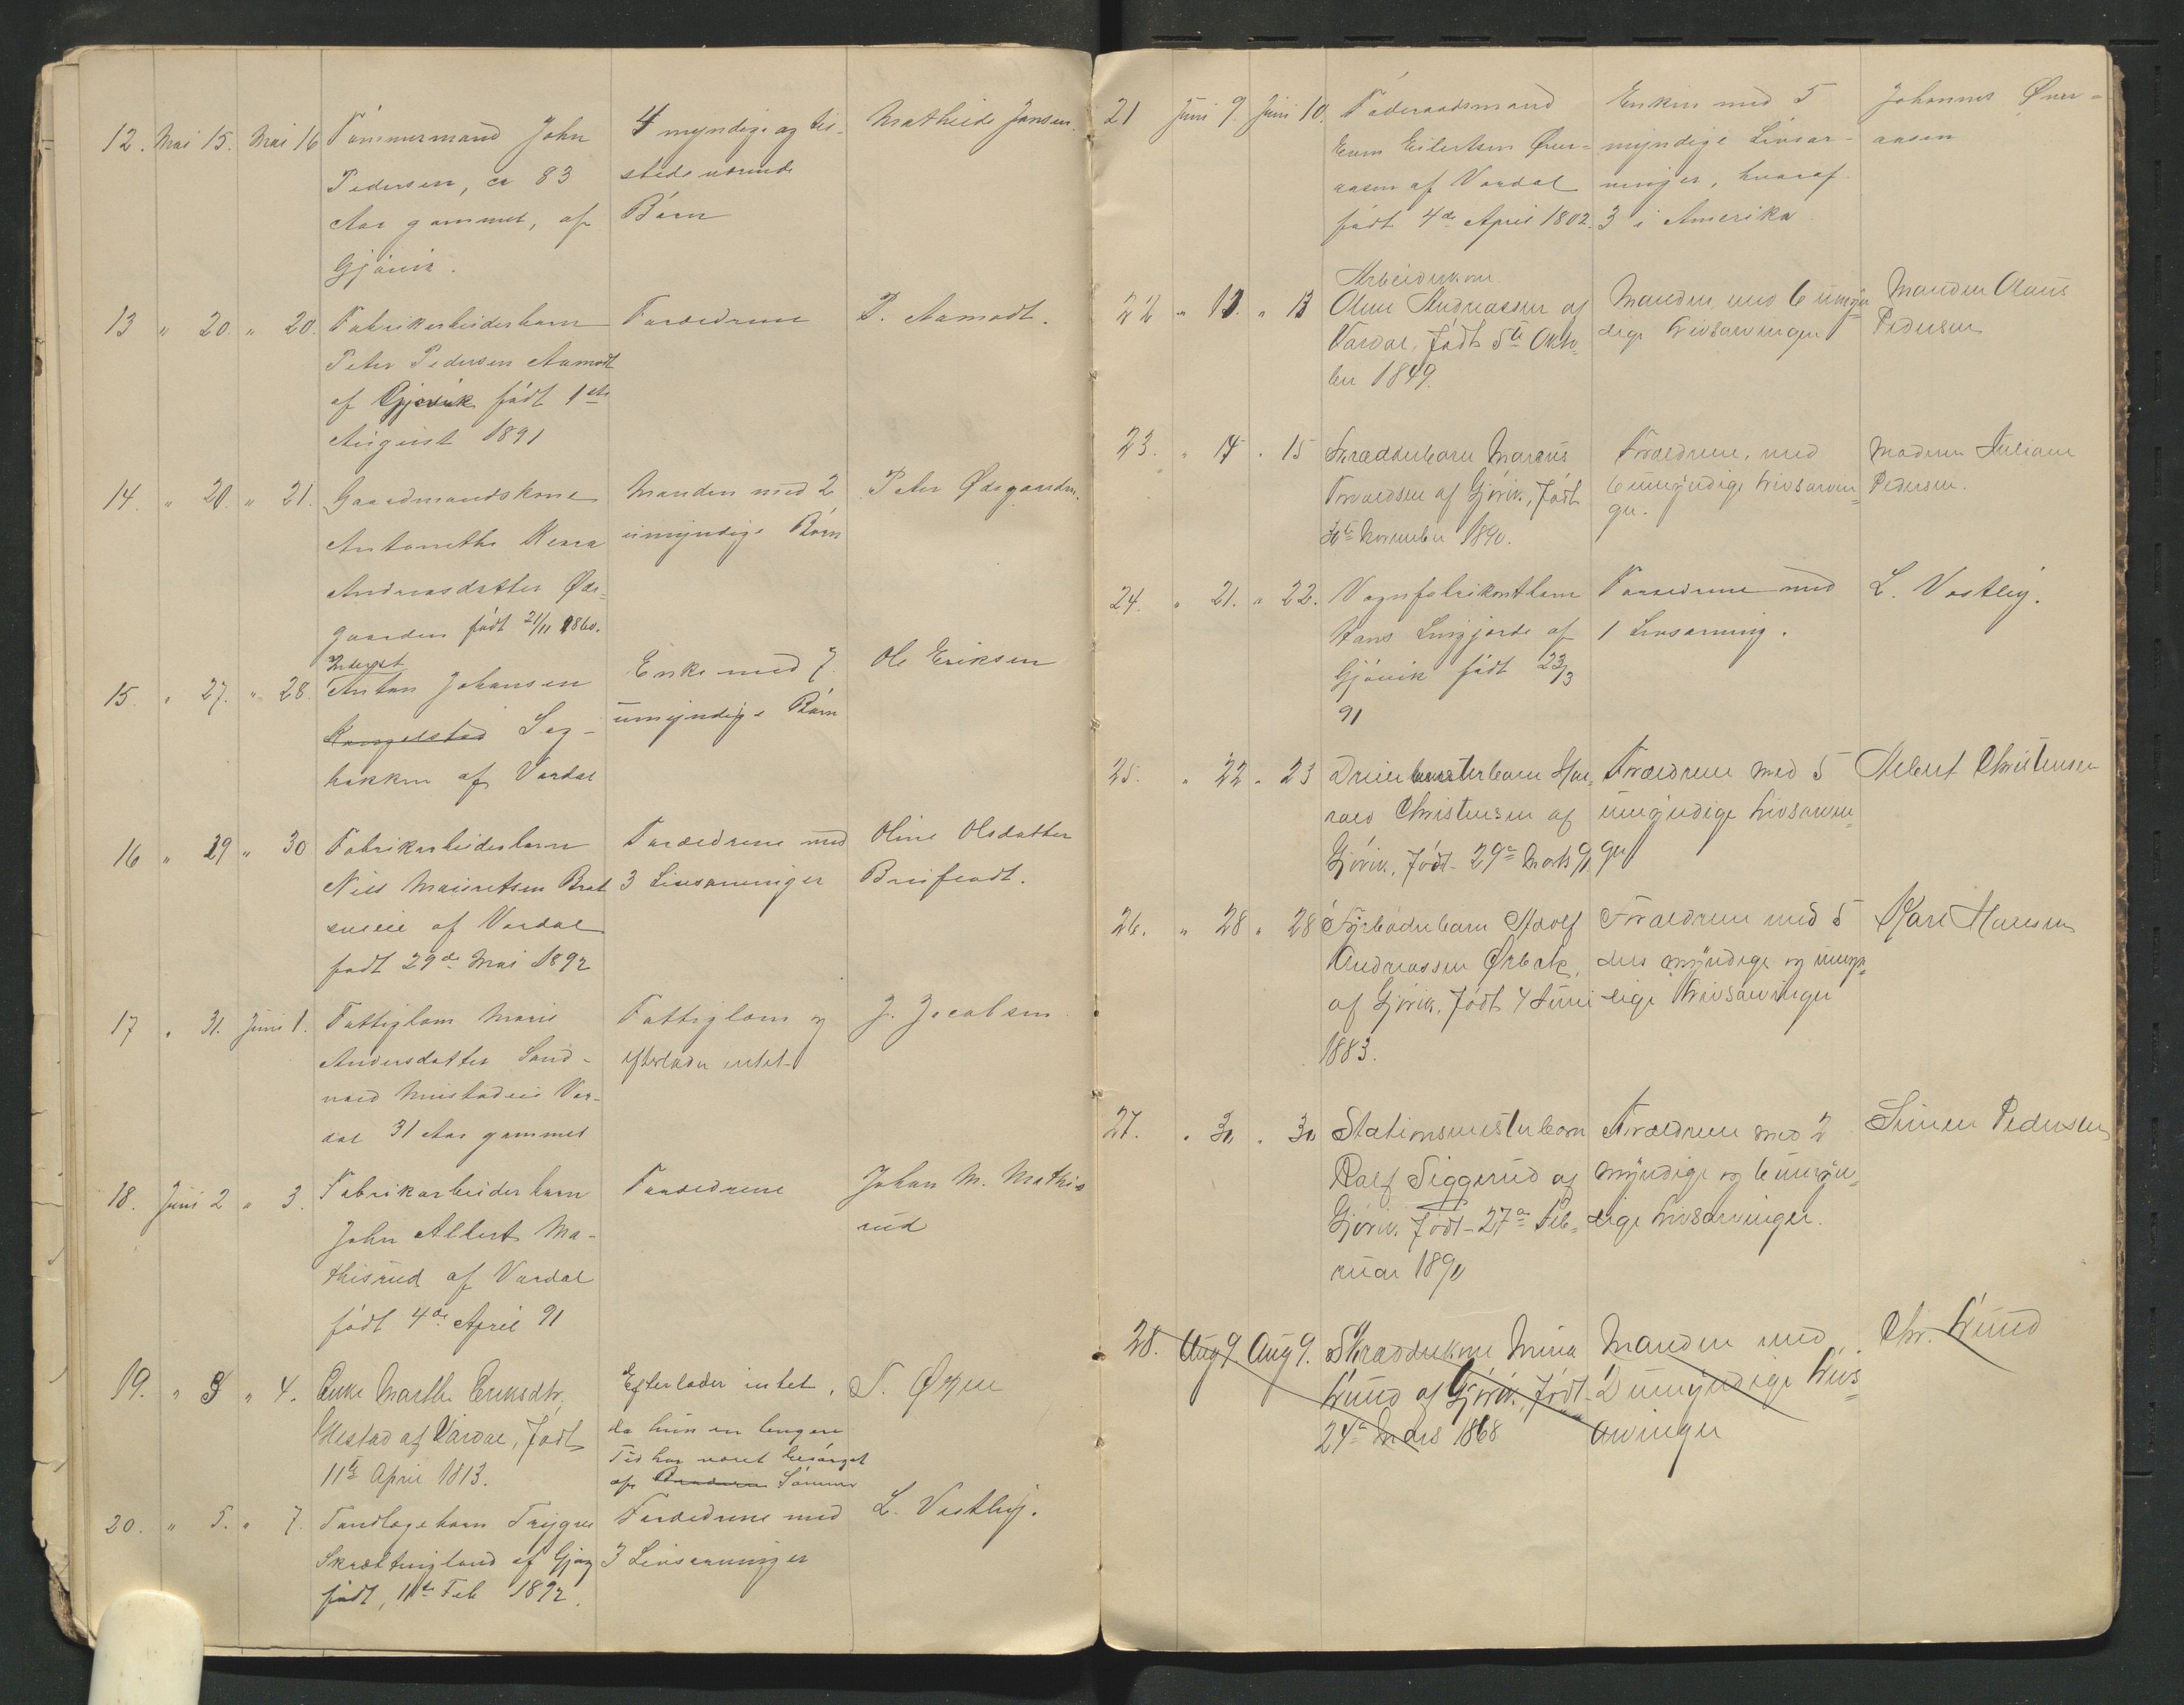 12. Mai 15. Mai 16 Tømmermand John 4 myndige og til- Mathilde Jansen.
Pedersen, ca 83 stede værende
Aar gammel, af Børn
Gjøvik.
13 " 20. " 20. Fabrikarbeiderbarn Forældrene P. Aamodt.
Peter Pedersen Aamodt
af Gjøvik født 1ste
August 1891
14. " 20. " 21. Gaardmandskone Manden med 2 Peter Ødegaarden.
Antonette umyndige Børn
Andreasdatter Øde-
gaarden født 21/11 1860.
Inderst
15. " 27. " 28. Anton Johansen Enke med 7 Ole Eriksen
Seg- umyndige Børn
hakken af Vardal
16 " 29 " 30 Fabrikarbeiderbarn Forældrene med Oline Olsdatter
Nils Mauritsen Brat 3 Livsarvinger
af Vardal
født 29de Mai 1892
17 " 31. Juni 1. Fattiglem Marie Fattiglem og J. Jacobsen
Andersdatter Sand- efterlader intet
vold Mustadeie Var-
dal 31 Aar gammel
18. Juni 2 " 3. Fabrikarbeiderbarn Forældrene Johan M. Mathis
John Albert Ma- rud
thisrud af Vardal
født 4de April 91
19. " 3 " 4. Enke Marthe Eriksdtr. Efterlader intet, S.
af Vardal, født da hun en længere
11te April 1813. Tid har været besørget
af Sønner
20. " 5. " 7. Tandlægebarn Trygve Forældrene med L. Vestby.
Skrættingland af Gjøv 3 Livsarvinger
født, 11te Feb 1892.
21 Juni 9. Juni 10. Føderaadsmand Enken med 5 Johannes Øver-
Even Eilertsen Øver- myndige Livsar- aasen
aasen af Vardal vinger, hvoraf
født 4de April 1802. 3 i Amerika
Arbeiderkone
22 " 13. " 13 Oline Andreassen af Manden med 6 umyn- Manden Olaus
Vardal, født 5te Okto- dige Livsarvinger Pedersen
ber 1849.
23. " 14 " 15 Skrædderbarn Marcus Forældrene, med Moderen Juliane
Thvaldsen af Gjøvik, født 6 umyndige Livsarvin- Pedersen.
30te November 1890. ger.
24. " 21. " 22. Vognfabrikantbarn Forældrene med L. Vestby.
Hans Lingjorde af 1 Livsarving.
Gjøvik født 23/3
91
25. " 22 " 23 Dreiermesterbarn Ha- Forældrene med 5 Albert Christensen
rald Christensen af umyndige Livsarvin-
Gjøvik, født 29de Marts 91 ger
26. " 28 " 28 Fyrbøderbarn Adolf Forældrene med 5 Karl Hansen
Andreassen Ørbæk, dels myndige og umyn-
af Gjøvik, født 4 Juni dige Livsarvinger
1883.
27. " 30 " 30 Stationsmesterbarn Forældrene med 2 Simen Pedersen
Ralf Siggerud af myndige og 6 umyn-
Gjøvik, født 27de Feb- dige Livsarvinger.
ruar 1890
28. Aug 9. Aug 9. Skrædderkone Mina Manden med Chr. Lund
Lund af Gjøvik, født 2 umyndige Livs
24de Mars 1868 arvinger